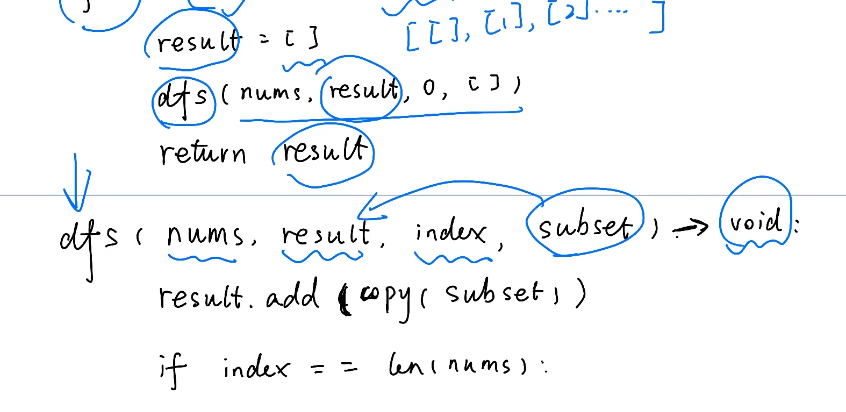 [[], [1], [2]....]
result = []
dfs(nums, result, 0, [])
return result
dfs(nums, result, index, subset) → void:
result.add(copy(subset))
if index == len(nums):